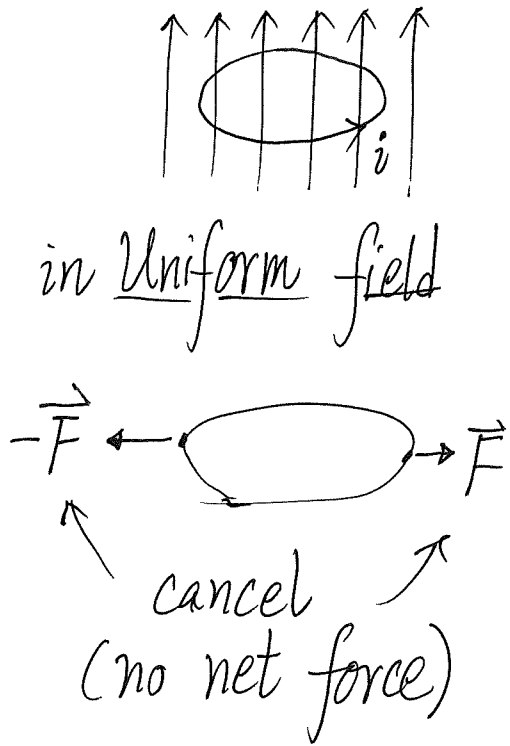 i
in Uniform field
-F⃗ F⃗
cancel
(no net force)